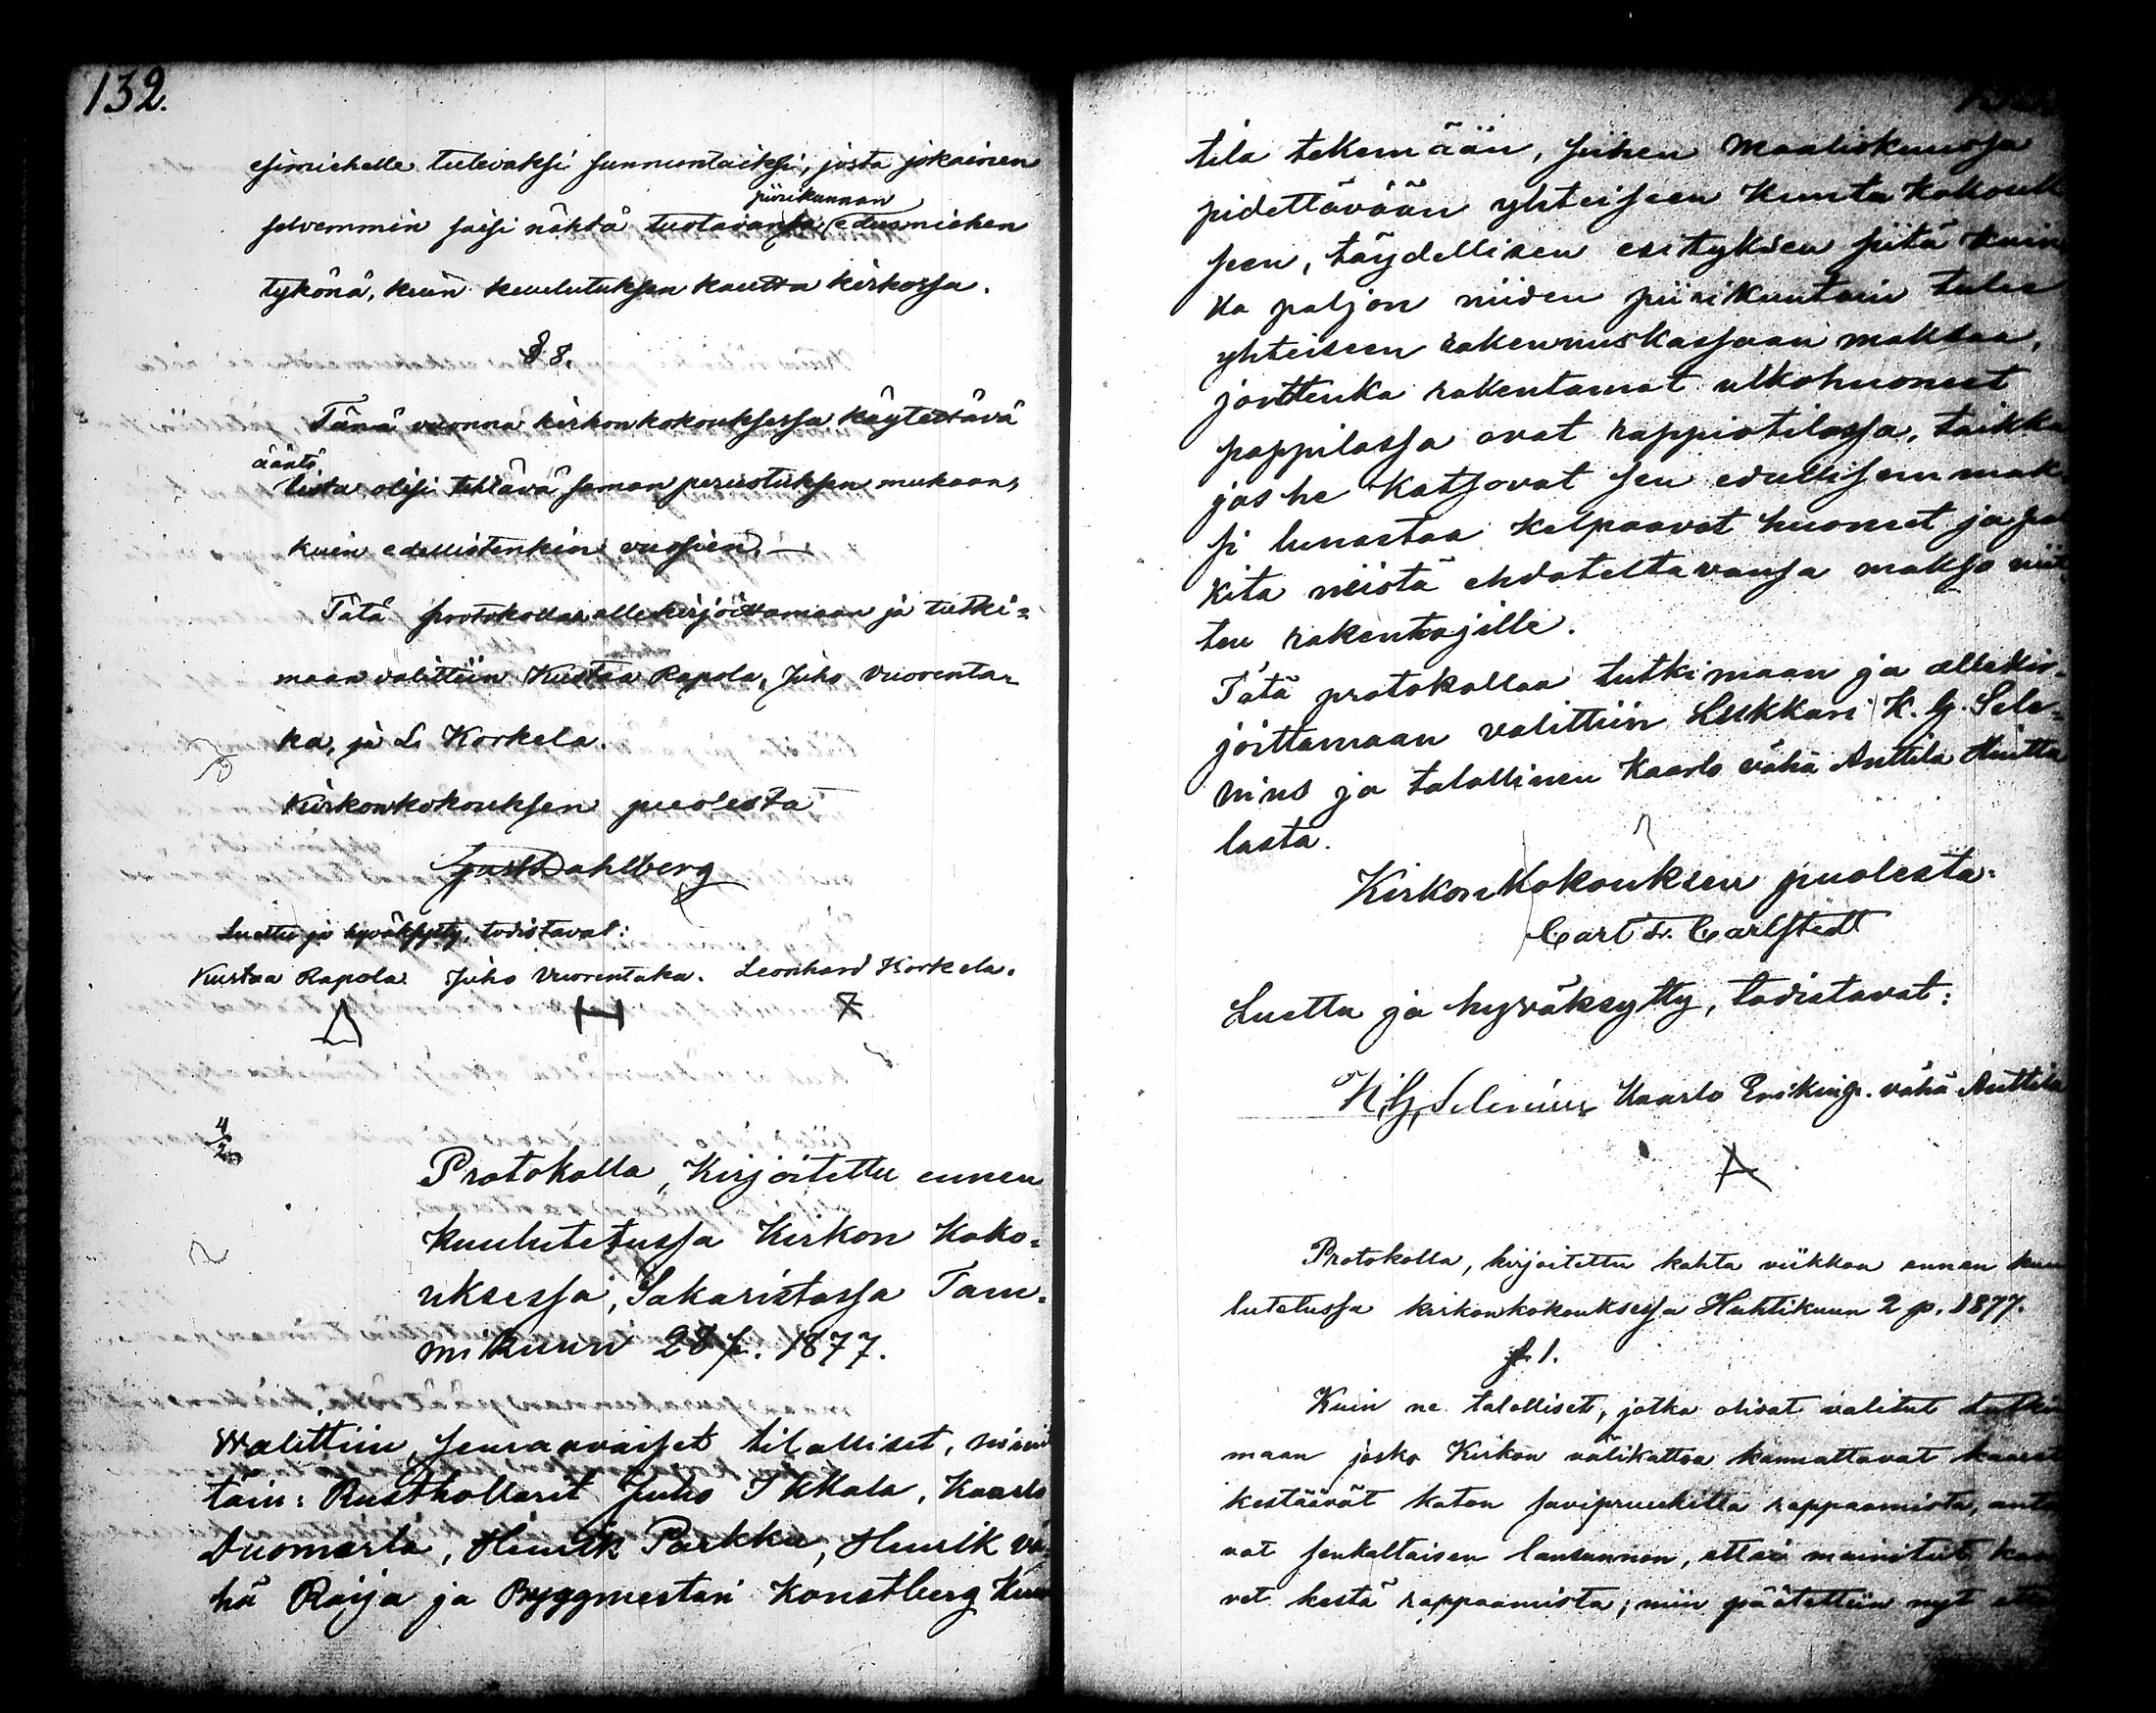 132.
esimiehelle tulevaksi sunnuntaiksi, josta jokainen
piirikunnan
selvemmin saisi nähdä tuotavansa edusmiehen
tykönä, kuin kuulutuksen kautta kirkossa.
§ 8.
Tänä vuonna kirkonkokouksessa käytettävä
ääntö
lista olisi tehtävä saman perustuksen mukaan,
kuin edellistenkin vuosien. —
Tätä protokollaa allekirjoittamaan ja tutki=
maan valittiin Kustaa Rapola, Juho Vuorenta=
ka, ja L. Korkela.
Kirkonkokouksen puolesta
Gust Dahlberg
Luettu ja hyväksytty, todistavat:
Kustaa Rapola. Juho Vuorentaka. Leonhard Korkela.
4/2
Protokolla, Kirjoitettu ennen
kuulutetussa Kirkon Koko=
uksessa, Sakaristassa Tam=
mikuun 28 p. 1877.
Walittiin, seuraavaiset tilalliset, nimit
täin: Rusthollarit Juho Ikkala, Kaarlo
Duomarla, Henrik Parkku, Henrik vä=
hä Raija ja Byggmestari Konstberg
tila tekemään, siihen Maaliskuussa
pidettävään yhteiseen Kunta Kokouk
seen, täydellisen esityksen siitä kuin
ka paljon niiden piirikuntain tulee
yhteiseen rakennuskassaan maksaa,
jonttenka rakentamat ulkohuoneet
pappilassa ovat rappiotilassa, taikka
jos he katsovat sen edullisemmak
si lunastaa kelpaavat huoneet ja
kita niistä ehdateltavansa maksa niit
ten rakentajille.
Tätä protokollaa tutkimaan ja allekir=
joittamaan valittiin Lukkari K. G. Sele=
nius ja talollinen Kaarlo vähä Anttila Huitta
lasta.
Kirkon Kokouksen puolesta:
Carl Fr. Carlstedt
Luettu ja hyväksytty, todistavat:
K. G. Selenius Kaarlo Erikinp. vähä Anttila
Protokolla, kirjoitettu kahta viikkoa ennen kuu
lutetussa kirkonkokouksessa Huhtikuun 2 p. 1877.
§ 1.
Kuin ne talolliset, jotka olivat valitut tutki
maan josko Kirkon välikattoa kannattavat kaaret
kestäävät katon saviprunkilla rappaamista, anta
vat senkaltaisen lausunnon, ettei mainitut kaa
ret kestä rappaamista; niin päätettiin nyt että